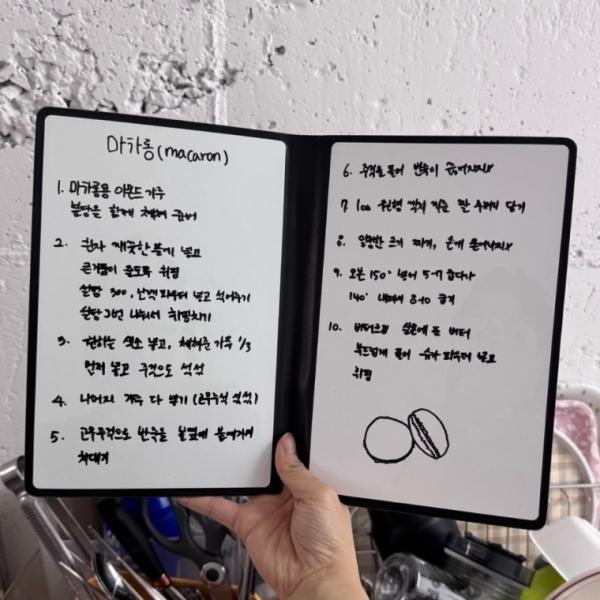 마카롱(macaron)
1. 마카롱용 아몬드 가루
분당은 함께 체쳐 준비
2. 흰자 깨끗한 볼에 넣고
큰거품이 올도록 휘핑
설탕 300, 난백파우더 넣고 섞어주기
설탕 2번 나눠서 휘핑하기
3. 원하는 색소 넣고, 체쳐준 가루 1/3
먼저 넣고 주걱으로 섞섞
4. 나머지 가루 다 넣기 (고무주걱 섞섞)
5. 고무주걱으로 반죽을 볼옆에 붙여가며
치대기
6. 주걱을 들어 반죽이 끊어지지X
7. 1cm 원형 깍지 끼운 짤주머니 담기
8. 일정한 크기 짜기, 손에 묻어나지X
9. 오븐 150° 넣어 5-7 굽다가
140° 내려서 8-10 굽기
10. 버터크림 실온에 둔 버터
부드럽게 풀어 슈가파우더 넣고
휘핑